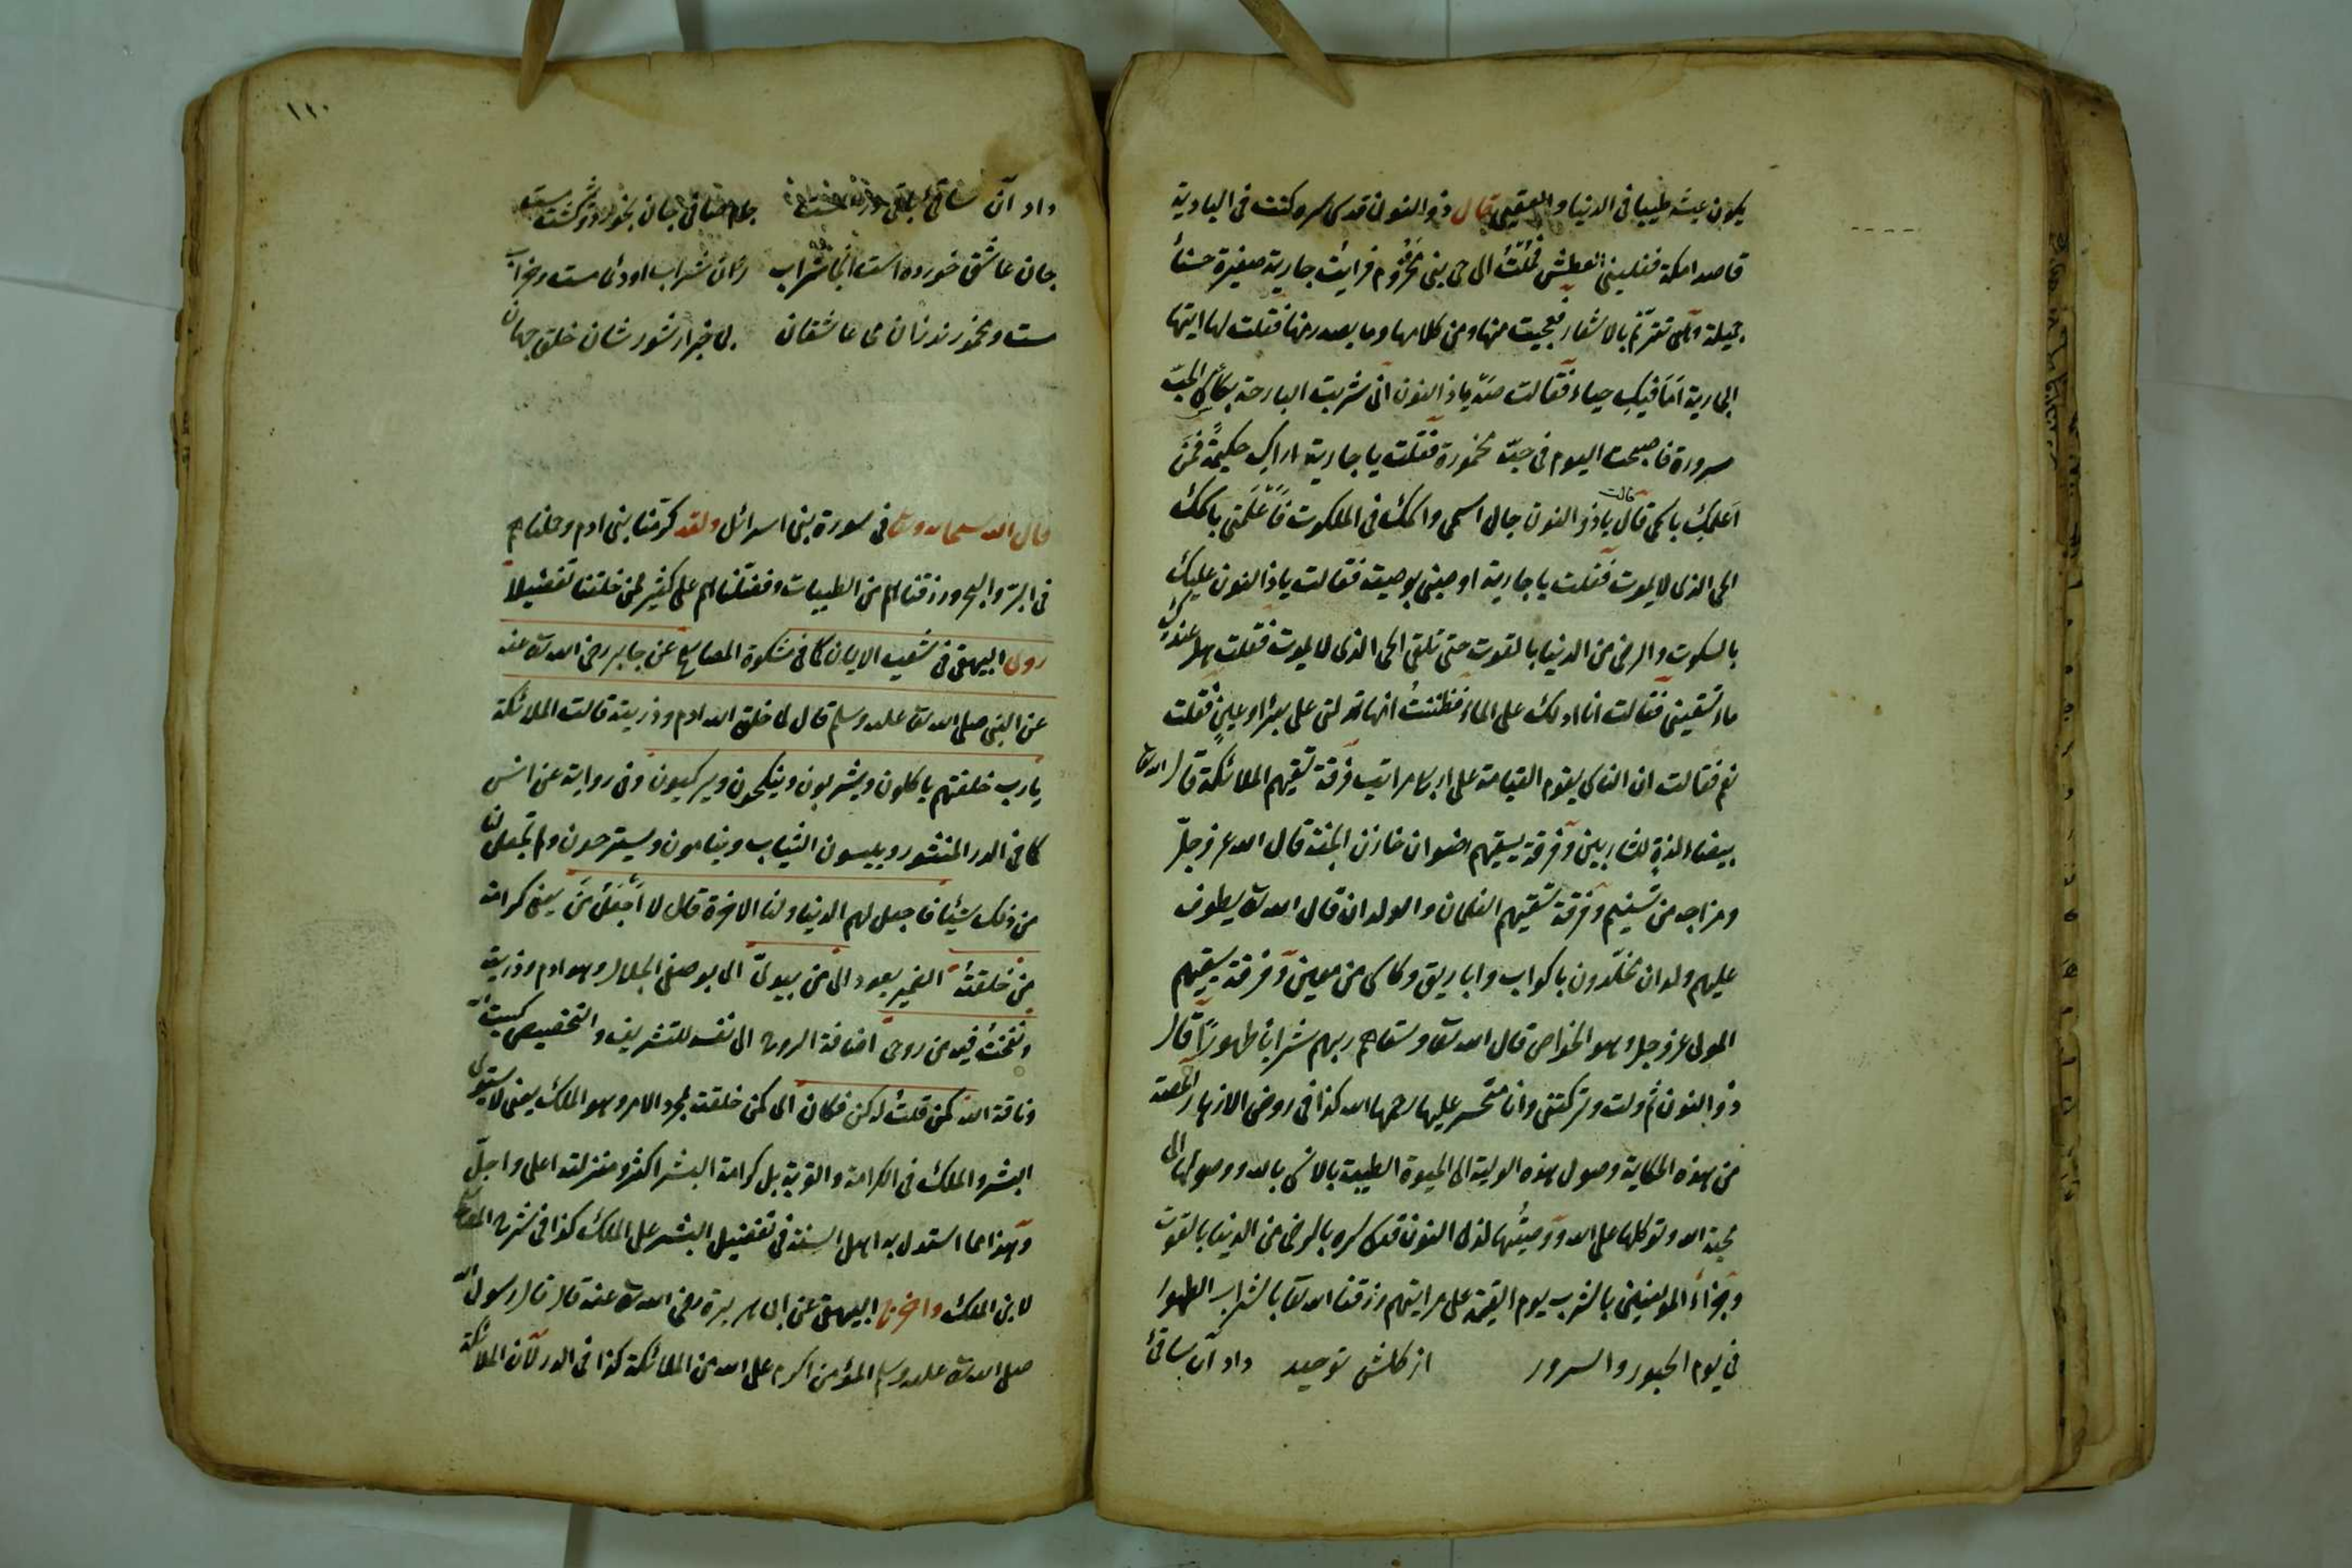 يكون عيشه طيبا فى الدنيا والعقبى قال ذو النون قدس سره كنت فى البادية
قاصدا مكة فغلبنى العطش فملت الى حى بنى مخزوم فرايت جارية صغيرة حسناء
جميلة وهى تترنم بالاشعار فعجبت منها ومن كلامها وما يصدر منها فقلت لها ايتها
الجارية اَمَا فيكِ حياء فقالت صَهْ يا ذا النون انى شربت البارحة بكأس الحبّ
مسرورة فاصبحت اليوم فى حبّه مخمورة فقلت يا جارية اراكِ حكيمةً فمَن
اَعلمكِ باسمى قال قالت يا ذو النون جال اسمى واسمك فى الملكوت فَاَعْلَمَنى باسمك
الحى الذى لا يموت فقلت يا جارية اوصينى بوصية فقالت يا ذا النون عليك
بالسكوت والرضى من الدنيا بالقوت حتى تلقى الحى الذى لا يموت فقلت هل عندكِ
ماء تسقينى فقالت انا ادلك على الماء فظننتُ انها تدلنى على بئر او عينٍ فقلت
نعم فقالت ان الناس يقوم القيامة على اربع مراتب فرقة تسقيهم الملائكة قال الله تعالى
بيضاء لذةٍ للشاربين وفرقة يسقيهم رضوان خازن الجنة قال الله عز وجلّ
ومزاجه من تسنيم وفرقة تسقيهم الغلمان والولدان قال الله تعالى يطوف
عليهم ولدان مخلّدون باكواب واباريق وكأس من معين وفرقة يسقيهم
المولى عز وجل وهو الخواص قال الله تعالى وسقاهم ربهم شرابا طهورًا قال
ذو النون ثم ولت وتركتنى وانا متحسر عليها رحمها الله كذا فى روض الازهار
من هذه الحكاية وصول هذه الولية الى الحيوة الطيبة بالانس بالله ووصولها الى
محبة الله وتوكلها على الله ووصيتُها لذى النون قدس سره بالرضى من الدنيا بالقوت
وجزاءُ المؤمنين بالشرب يوم القيمة على مراتبهم رزقنا الله تعالى بالشراب الطهور
فى يوم الحبور والسرور از گلشن توحيد داد آن ساقئ
١١٠
داد آن ساقئ باقى جام صافى جان بخورد
جان عاشق خورده است آنجا شراب زان شراب اودئ مست وخراب
مست ومخمورند زان مى عاشقان بى خبر از شورشان خلق جهان
قال الله سبحانه وتعالى فى سورة بنى اسرائل ولقد كرّمنا بنى ادم وحملناهم
فى البرّ والبحر ورزقناهم من الطيبات وفضّلناهم على كثير ممن خلقنا تفضيلاً
روى البيهقى فى شعب الايمان كما فى مشكوة المصابيح عن جابر رضى الله تعالى عنه
عن النبى صلى الله تعالى عليه وسلم قال لما خلق الله ادم وذريته قالت الملائكة
يا رب خلقتهم ياكلون ويشربون وينكحون ويركبون وفى رواية عن انس
كما فى الدر المنثور ويلبسون الثياب وينامون ويستريحون ولم تجعل لنا
من ذلك شيئا فاجعل لهم الدنيا ولنا الاخرة قال لا اَجْعَلُ مَنْ يعنى كرامة
مَن خلقتُه الضمير يعود الى مَن بيدىّ اى بوصفى الجلال وهو ادم وذريته
ونفختُ فيه من روحى اضافة الروح الى نفسه للتشريف والتخصيص كبيت الله
وناقة الله كمن قلتُ له كن فكان اى كمن خلقته بمجرد الامر وهو الملك يعنى لا يستوى
البشر والملك فى الكرامة والقربة بل كرامة البشر اكثر ومنزلته اعلى واجلّ
وهذا مما استدل به اهل السنة فى تفضيل البشر على الملك كذا فى شرح
لابن الملك واخرج البيهقى عن ابى هريرة رضى الله تعالى عنه قال قال رسول الله
صلى الله تعالى عليه وسلم المؤمن اكرم على الله من الملائكة كذا فى الدر لان الملائكة